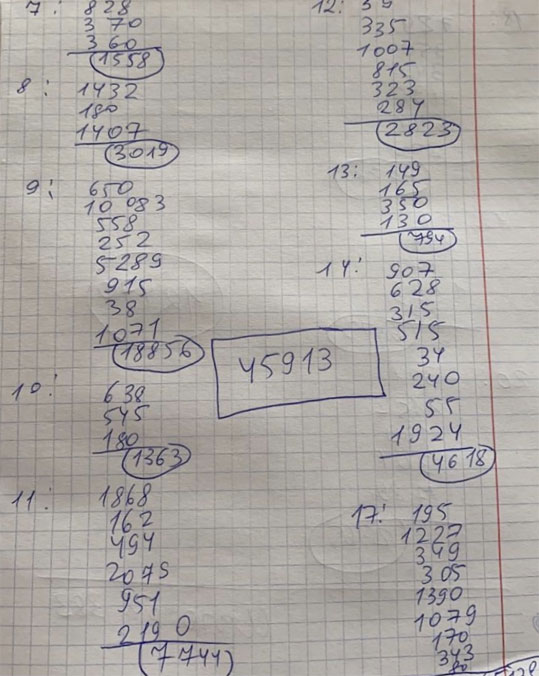 7: 828
370
360
1558
8: 1432
180
1407
3019
9: 650
10 083
558
252
5289
915
38
1071
18856
10: 638
545
180
1363
11: 1868
162
494
2075
951
2190
7744
45913
12: 59
335
1007
815
323
284
2823
13: 149
165
350
130
794
14: 907
628
315
515
34
240
55
1924
4618
17: 195
1227
349
305
1390
1079
170
343
80